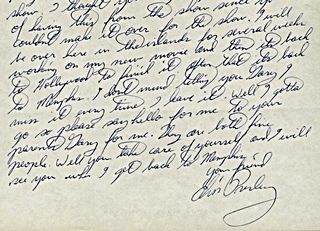 show. I thought you
of having this from the show since you
couldn't make it over for the show. I will
be over here in the islands for several weeks
working on my new movie and then its back
to Hollywood to finish it after that its back
to Memphis. I don't mind telling you Gary I
miss it every time I leave it. Well I gotta
go so please say hello for me to your
parents Gary for me. They are both fine
people. Well you take care of yourself and I will
see you when I get back to Memphis
your friend
Elvis Presley